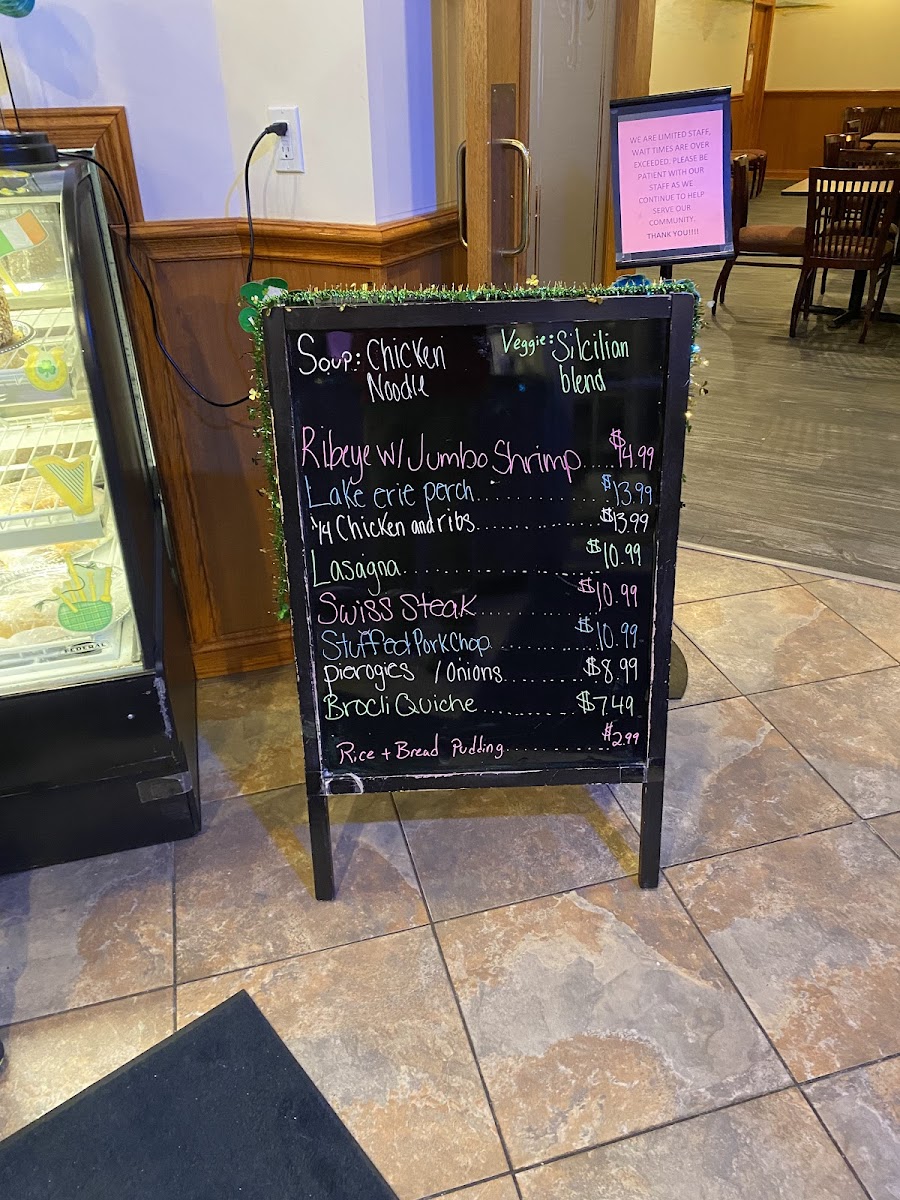 WE ARE LIMITED STAFF,
WAIT TIMES ARE OVER
EXCEEDED. PLEASE BE
PATIENT WITH OUR
STAFF AS WE
CONTINUE TO HELP
SERVE OUR
COMMUNITY.
THANK YOU!!!!
Soup: Chicken
Noodle
Veggie: Silcilian
blend
Ribeye W/ Jumbo Shrimp.... $14.99
Lake erie perch............. $13.99
1/4 Chicken and ribs............. $13.99
Lasagna.................... $10.99
Swiss Steak............. $10.99
Stuffed Pork Chop............. $10.99
pierogies / Onions.......... $8.99
Brocli Quiche ............ $7.49
Rice + Bread Pudding............ $2.99
FEDERAL